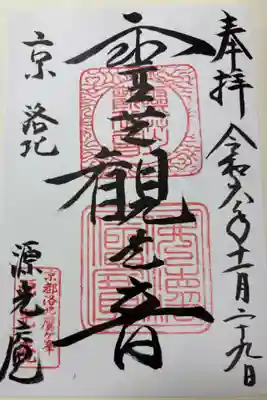 奉拝 令和六年十一月二十九日
霊芝觀世音
京 洛北
源光庵
京都洛北鷹ヶ峯